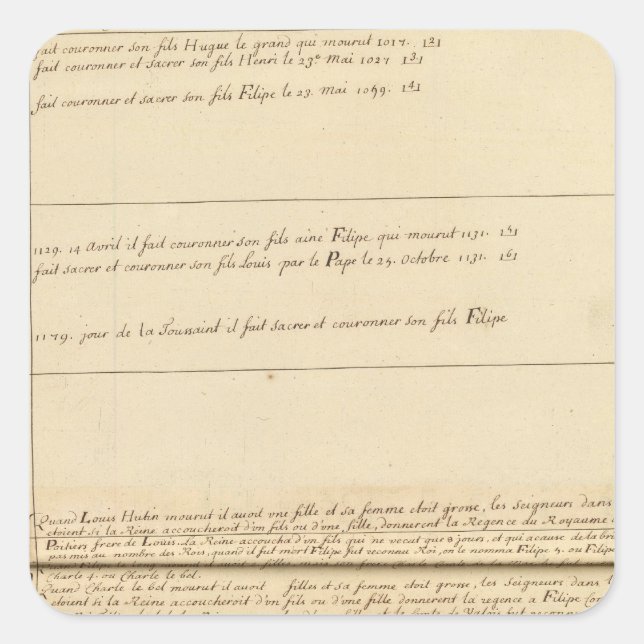 fait couronner son fils Hugue le grand qui mourut 1017. |2|
fait couronner et sacrer son fils Henri le 23e Mai 1027 |3|
fait couronner et sacrer son fils Filipe le 23. Mai 1059. |4|
1129. 14 Avril il fait couronner son fils ainé Filipe qui mourut 1131. |5|
fait sacrer et couronner son fils Louis par le Pape le 25. Octobre 1131. |6|
1179. jour de la Toussaint il fait sacrer et couronner son fils Filipe
Quand Louis Hutin mourut il avoit une fille et sa femme etoit grosse, les Seigneurs dans
etoient si la Reine accoucheroit d'vn fils ou d'vne, fille, donnerent la Regence du Royaume
Poitiers frere de Louis. La Reine accoucha d'vn fils qui ne vecut que 8 jours, et qui acause de la
pas mis au nombre des Rois, quand il fut mort Filipe fut reconnu Roi, on le nomma Filipe 5. ou Filipe
Charle 4. ou Charle le bel.
Quand Charle le bel mourut il avoit filles et sa femme etoit grosse, les Seigneurs dans
etoient si la Reine accoucheroit d'vn fils ou d'vne fille donnerent la regence a Filipe